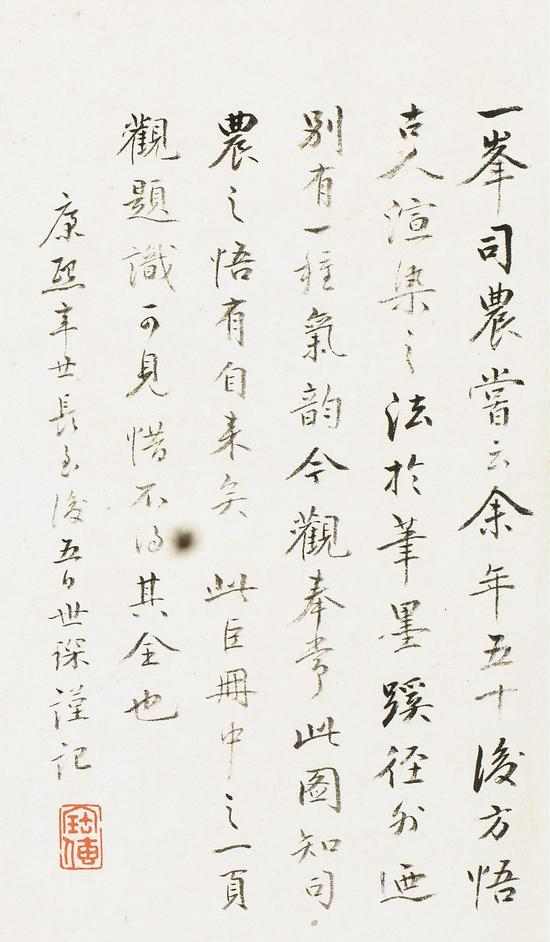 一峯司農嘗云余年五十後方悟
古人渲染之法於筆墨蹊徑外迺
別有一種氣韵今觀奉常此圖知司
農之悟有自来矣 此巨冊中之一頁
觀題識可見惜不得其全也
康熙辛丗長至後五日世琛謹記